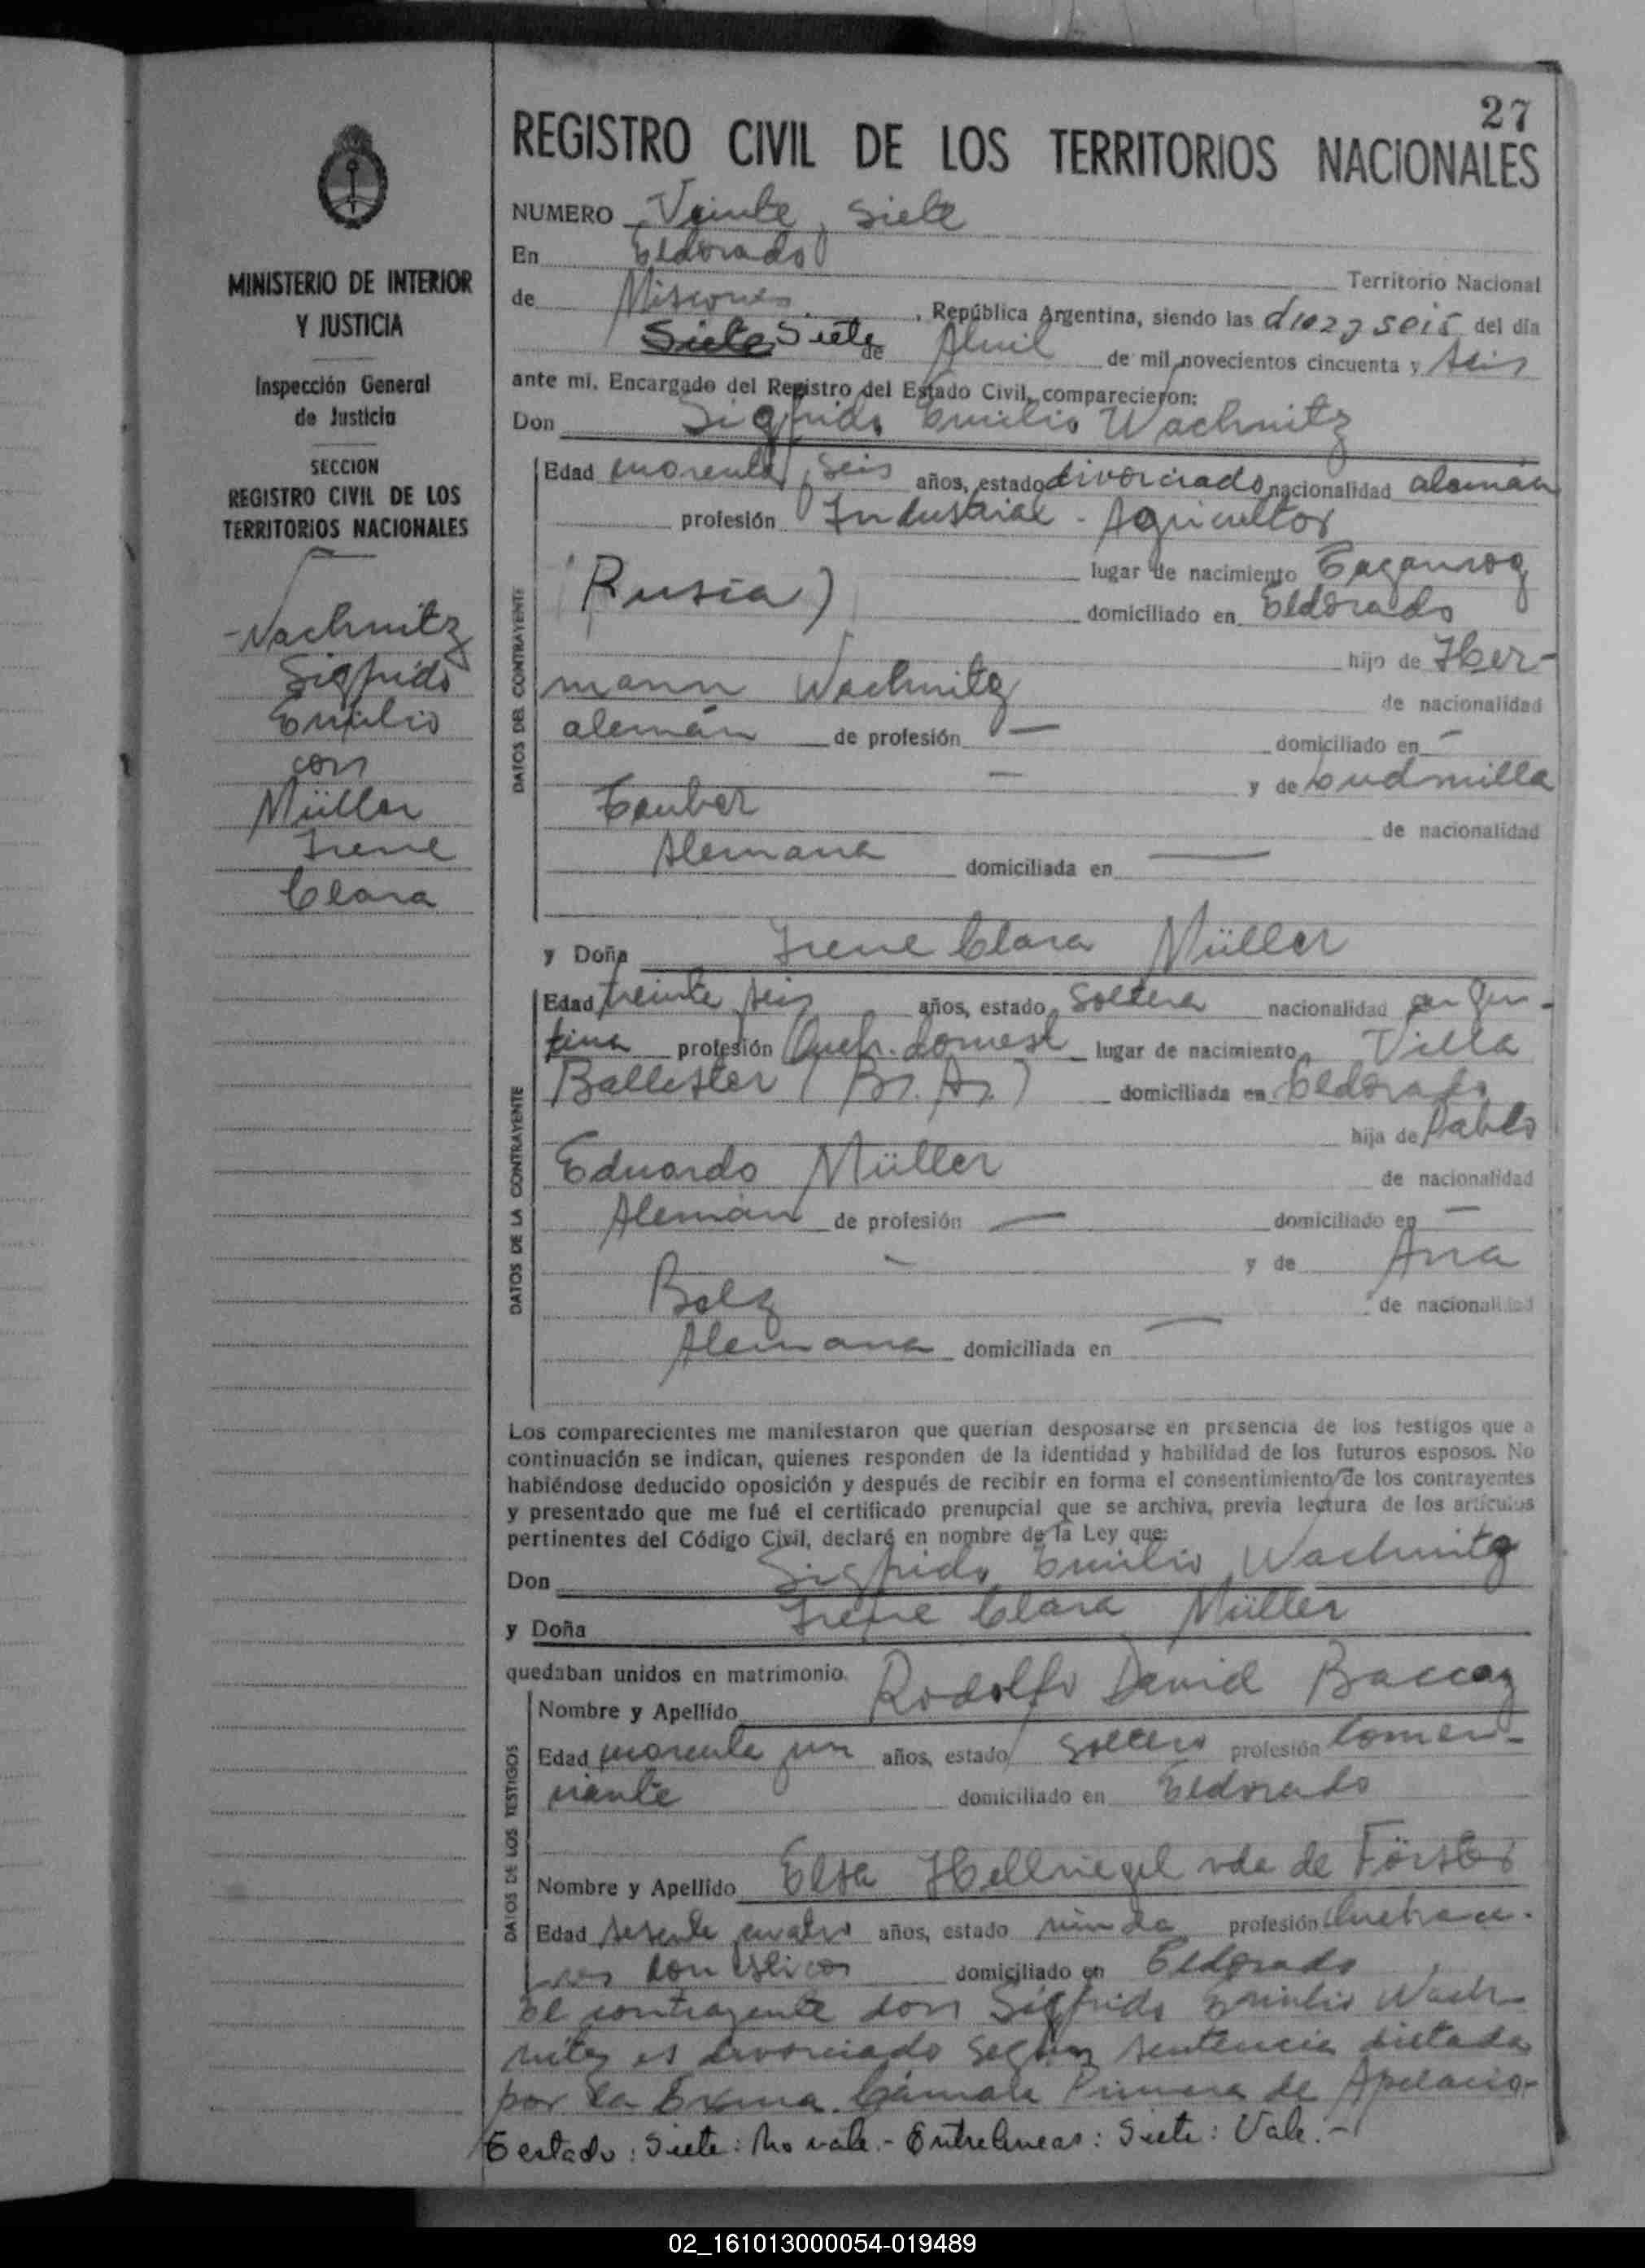 27
REGISTRO CIVIL DE LOS TERRITORIOS NACIONALES
MINISTERIO DE INTERIOR
Y JUSTICIA
Inspección General
de Justicia
SECCION
REGISTRO CIVIL DE LOS
TERRITORIOS NACIONALES
Wachnitz
Sigfrido
Emilio
con
Müller
Irene
Clara
NUMERO Veinte, siete
En Eldorado
Territorio Nacional
de Misiones, República Argentina, siendo las diez y seis del día
Siete Siete de Abril de mil novecientos cincuenta y seis
ante mí, Encargado del Registro del Estado Civil, comparecieron:
Don Sigfrido Emilio Wachnitz
DATOS DEL CONTRAYENTE
Edad cuarenta, seis años, estado divorciado nacionalidad alemán
profesión Industrial - Agricultor
lugar de nacimiento Taganrog
(Rusia) domiciliado en Eldorado
hijo de Her-
mann Wachnitz
de nacionalidad
alemán de profesión — domiciliado en —
— y de Ludmilla
Tauber
de nacionalidad
Alemana domiciliada en —
y Doña Irene Clara Müller
DATOS DE LA CONTRAYENTE
Edad treinta, seis años, estado soltera nacionalidad argen-
tina profesión Queh. domest lugar de nacimiento Villa
Ballester (Bs. As.) domiciliada en Eldorado
hija de Pablo
Eduardo Müller
de nacionalidad
Alemán de profesión — domiciliado en —
— y de Ana
Bolz
de nacionalidad
Alemana domiciliada en —
Los comparecientes me manifestaron que querían desposarse en presencia de los testigos que a
continuación se indican, quienes responden de la identidad y habilidad de los futuros esposos. No
habiéndose deducido oposición y después de recibir en forma el consentimiento de los contrayentes
y presentado que me fué el certificado prenupcial que se archiva, previa lectura de los artículos
pertinentes del Código Civil, declaré en nombre de la Ley que:
Don Sigfrido Emilio Wachnitz
y Doña Irene Clara Müller
quedaban unidos en matrimonio.
DATOS DE LOS TESTIGOS
Nombre y Apellido Rodolfo David
Edad cuarenta, un años, estado soltero profesión comer-
ciante domiciliado en Eldorado
Nombre y Apellido Elsa Hellriegel vda de Förster
Edad sesenta, cuatro años, estado viuda profesión Quehace-
res domésticos domiciliado en Eldorado
El contrayente don Sigfrido Emilio Wach-
nitz es divorciado según sentencia dictada
por la Exma. Cámara Primera de Apelacio-
Testado: Siete: No vale.- Entrelineas: Siete: Vale.-
02_161013000054-019489